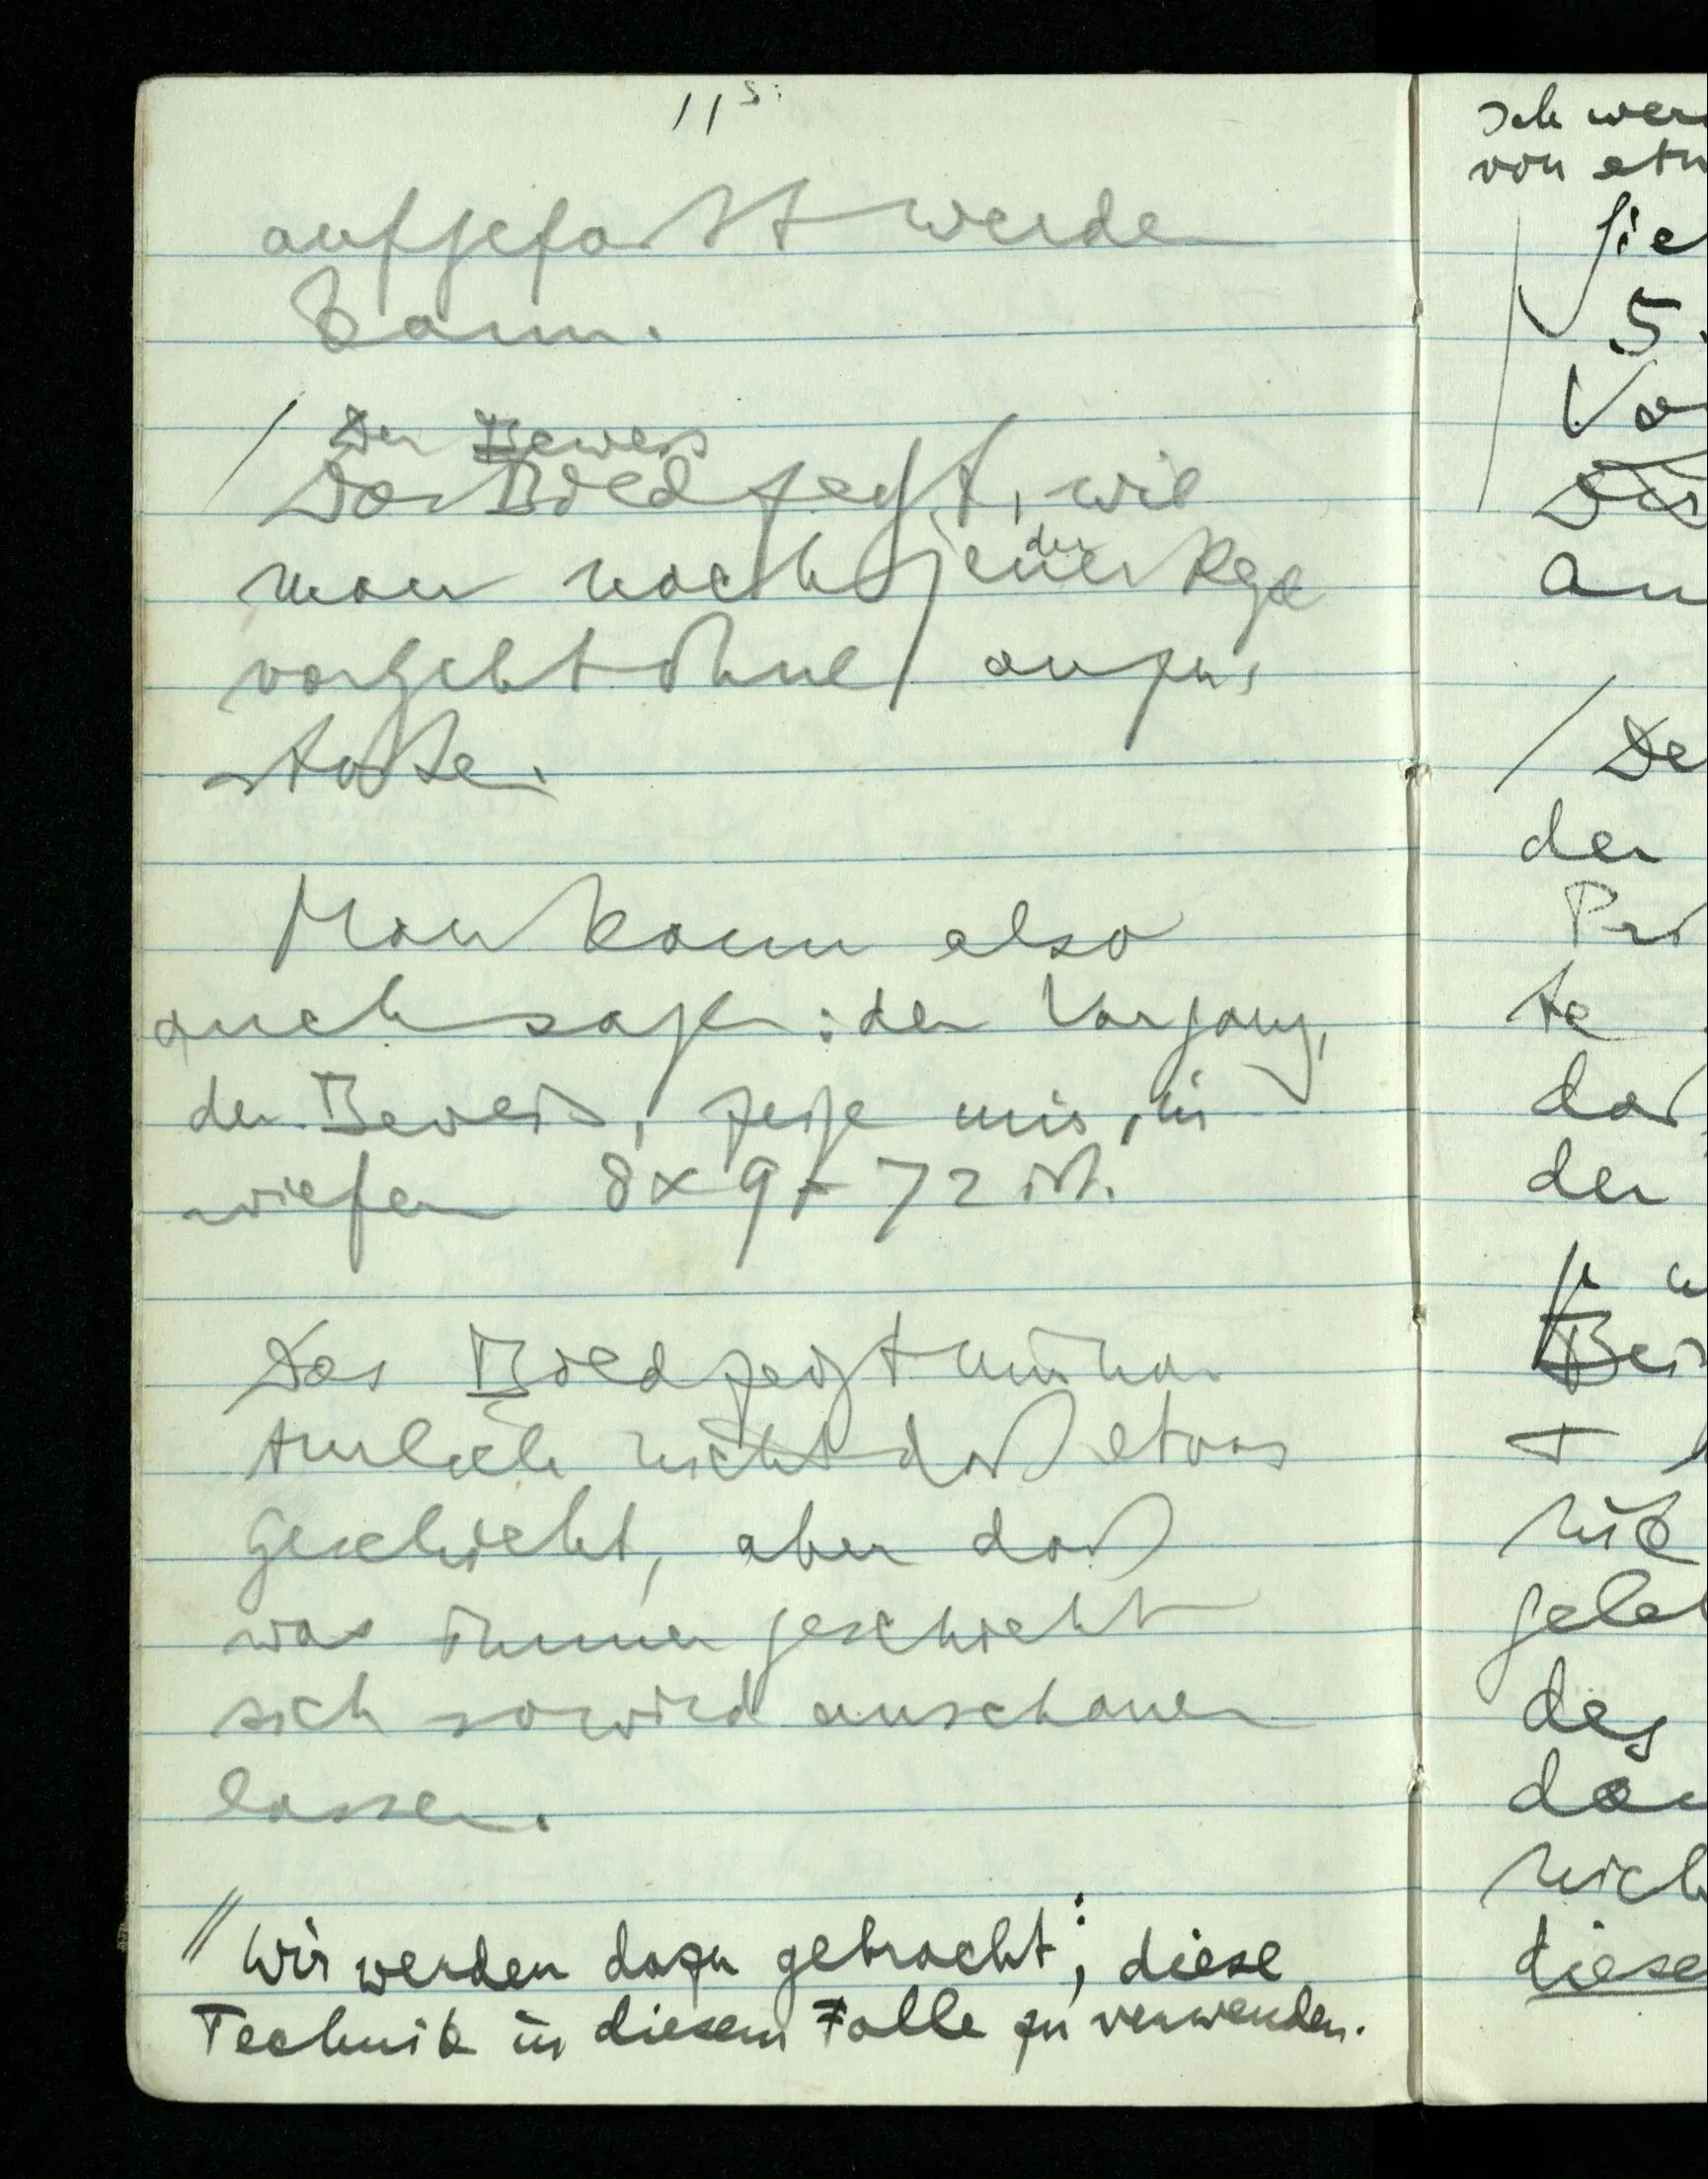 aufgefaßt werden
kann.
/ Der Beweis
Das Bild zeigt, wie
der
man nach jener Regel
vorgeht ohne anzu-
stoßen.
Man kann also
auch sagen: der Vorgang,
der Beweis, zeige mir, in-
wiefern 8 × 9 = 72 ist.
Das Bild zeigt mir na-
türlich nicht daß etwas
geschieht, aber daß
was immer geschieht
sich so wird anschauen
lassen.
// Wir werden dazu gebracht: diese
Technik in diesem Falle zu verwenden.
Ich wer
von etw
Sie
5
Vo
an
/ De
der
te
daß
der
Bei
nik
des
nich
diese